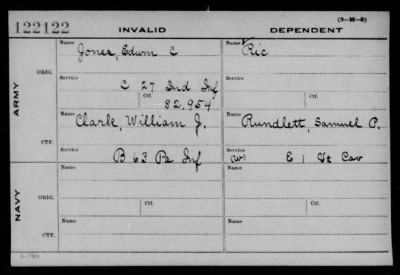 (3-M-3)
122122 INVALID DEPENDENT
Name Jones, Edwin C Name Ric
ORIG.
Service C 27 Ind Inf Service
Ctf. 82,954 Ctf.
ARMY
Name Clark, William J. Name Rundlett, Samuel P.
CTF.
Service B 63 Pa Inf Service (W) E 1 Vt Cav
Name Name
ORIG.
Ctf. Ctf.
NAVY
Name Name
CTF.